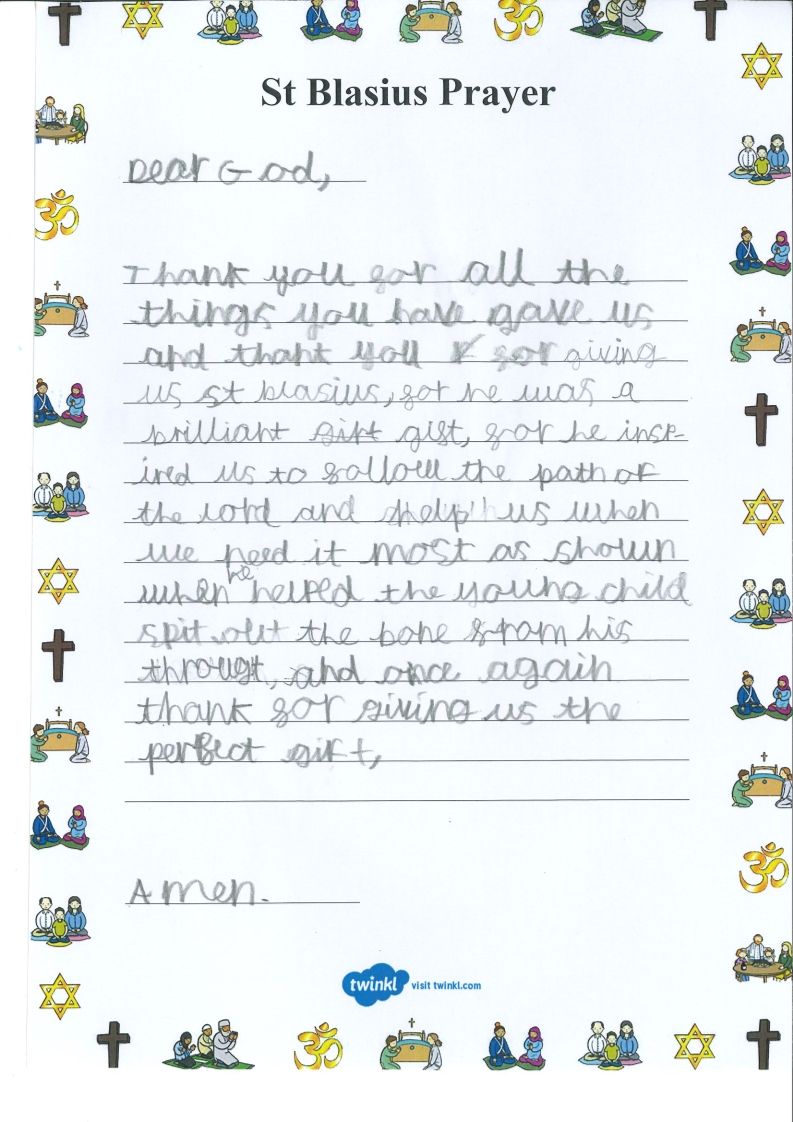 St Blasius Prayer
Dear God,
Thank you for all the
things you have gave us
and thank you for giving
us st blasius, for he was a
brilliant gift, for he insp-
ired us to follow the path of
the lord and help us when
we need it most as shown
when he helped the young child
spit out the bone from his
throught, and once again
thank for giving us the
perfect gift,
Amen.
twinkl visit twinkl.com